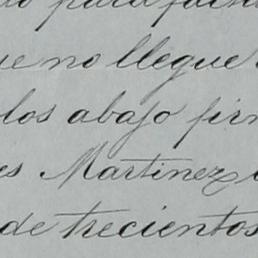 para
ue no llegue
los abajo fir
es Martinez
de trecientos